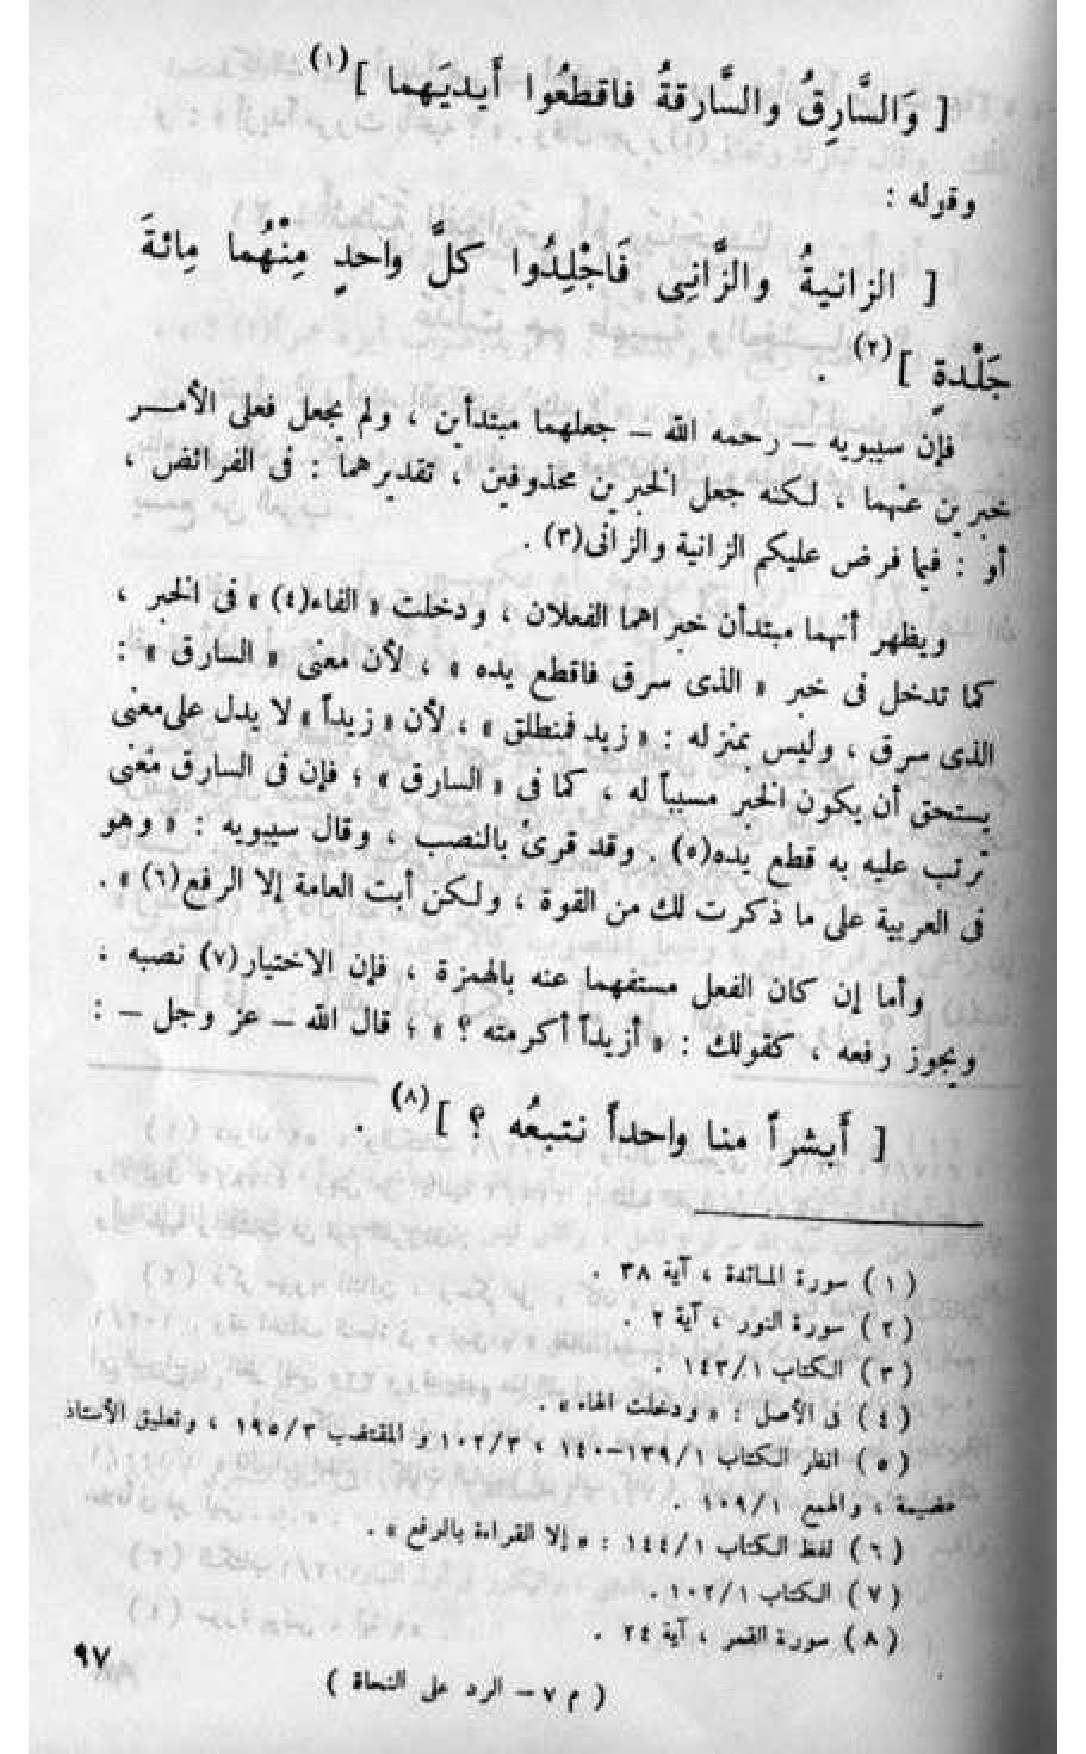 [ وَالسَّارِقُ والسَّارقةُ فاقطعُوا أَيديَهما ](١)
وقوله :
[ الزانيةُ والزَّانِى فَاجْلِدُوا كلَّ واحدٍ مِنْهُما مِائةَ
جَلْدةٍ ](٢) .
فإن سيبويه – رحمه الله – جعلهما مبتدأين ، ولم يجعل فعلى الأمر
خبرين عنهما ، لكنه جعل الخبرين محذوفين ، تقديرهما : فى الفرائض ،
أو : فيما فرض عليكم الزانية والزانى(٣) .
ويظهر أنهما مبتدأن خبراهما الفعلان ، ودخلت « الفاء(٤) » فى الخبر ،
كما تدخل فى خبر « الذى سرق فاقطع يده » ، لأن معنى « السارق » :
الذى سرق ، وليس بمنزله : « زيد فمنطلق » ، لأن « زيداً » لا يدل على معنى
يستحق أن يكون الخبر مسبباً له ، كما فى « السارق » ؛ فإن فى السارق معْنى
ترتب عليه به قطع يده(٥) . وقد قرئ بالنصب ، وقال سيبويه : « وهو
فى العربية على ما ذكرت لك من القوة ، ولكن أبت العامة إلا الرفع(٦) » .
وأما إن كان الفعل مستفهما عنه بالهمزة ، فإن الاختيار(٧) نصبه ،
ويجوز رفعه ، كقولك : « أزيداً أكرمته ؟ » ؛ قال الله – عز وجل – :
[ أَبشراً منا واحداً نتبعُه ؟ ](٨) .
( ١ ) سورة المائدة ، آية ٣٨ .
( ٢ ) سورة النور ، آية ٢ .
( ٣ ) الكتاب ١٤٣/١ .
( ٤ ) فى الأصل : « ودخلت الهاء » .
( ٥ ) انظر الكتاب ١٣٩/١–١٤٠ ، ١٠٢/٣ و المقتضب ١٩٥/٣ ، وتعليق الأستاذ
عضيمة ، والهمع ١٠٩/١ .
( ٦ ) لفظ الكتاب ١٤٤/١ : « إلا القراءة بالرفع » .
( ٧ ) الكتاب ١٠٢/١ .
( ٨ ) سورة القمر ، آية ٢٤ .
٩٧
( م ٧ – الرد على النحاة )